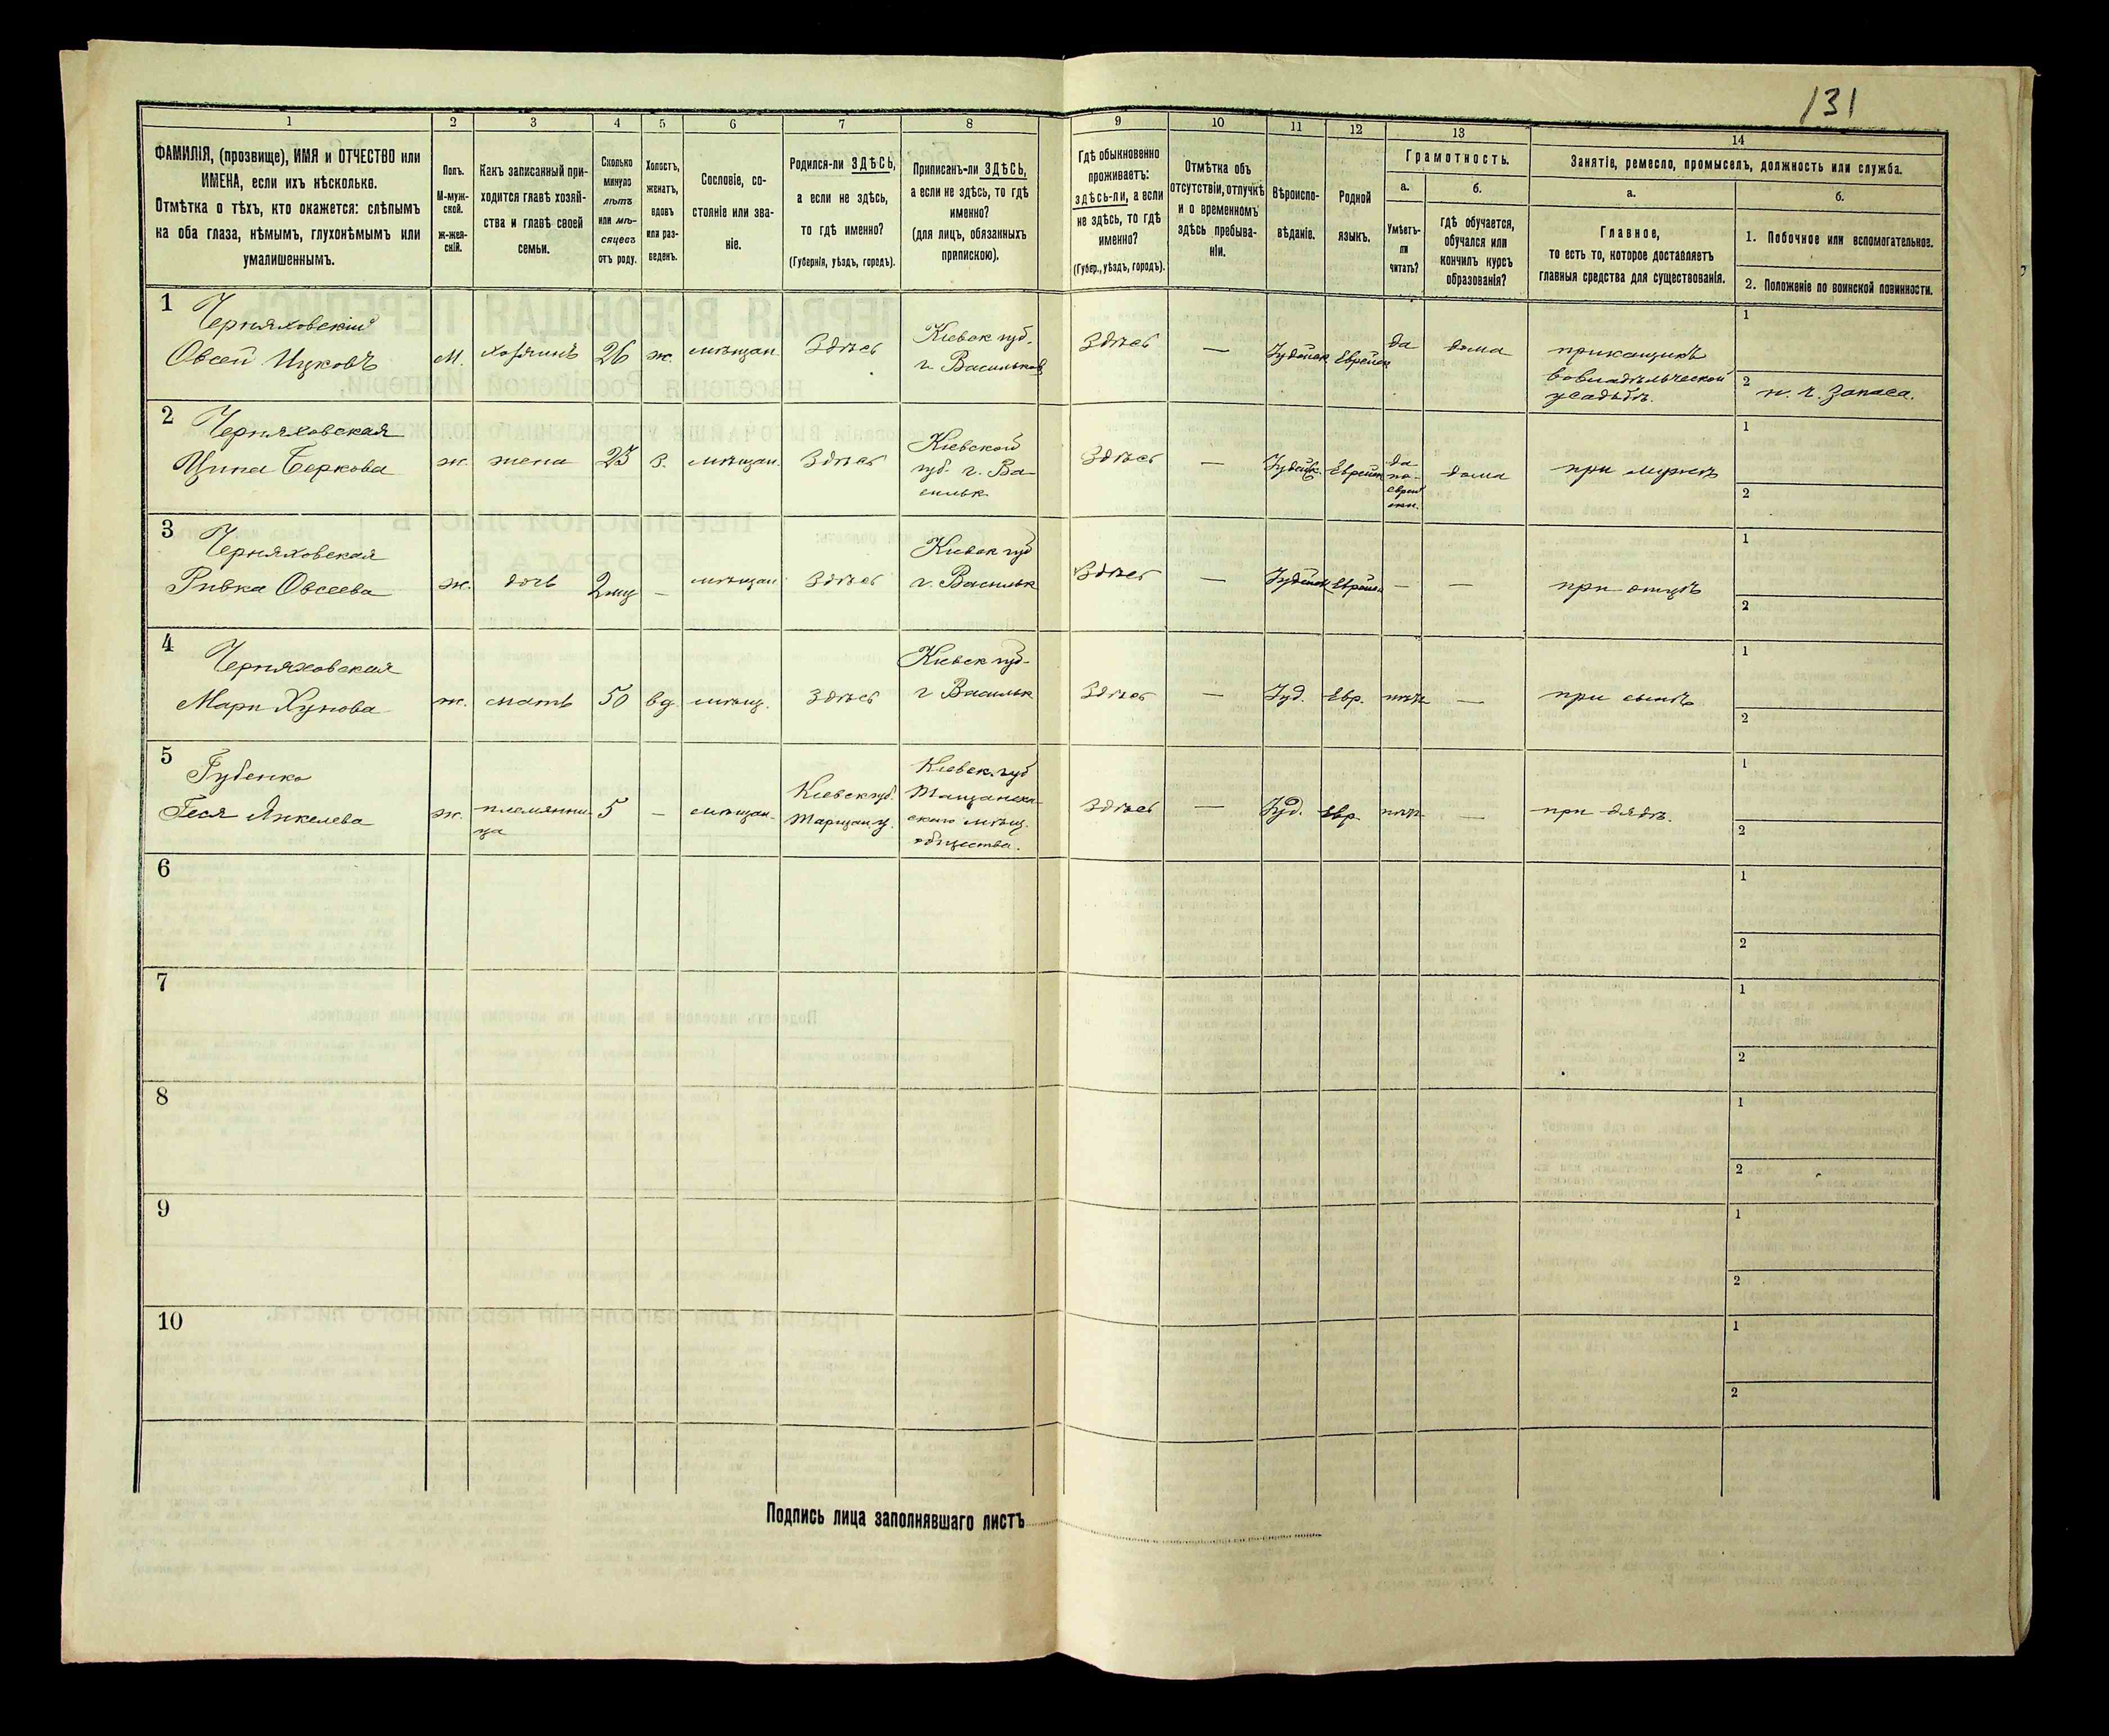 131
1 2 3 4 5 6 7 8 9 10 11 12 13 14
ФАМИЛІЯ, (прозвище), ИМЯ и ОТЧЕСТВО или
ИМЕНА, если ихъ нѣсколько.
Отмѣтка о тѣхъ, кто окажется: слѣпымъ
на оба глаза, нѣмымъ, глухонѣмымъ или
умалишеннымъ.
Полъ.
М-муж-
ской.
ж-жен-
скій.
Какъ записанный при-
ходится главѣ хозяй-
ства и главѣ своей
семьи.
Сколько
минуло
лѣтъ
или мѣ-
сяцевъ
отъ роду.
Холостъ,
женатъ,
вдовъ
или раз-
веденъ.
Сословіе, со-
стояніе или зва-
ніе.
Родился-ли ЗДѢСЬ,
а если не здѣсь,
то гдѣ именно?
(Губернія, уѣздъ, городъ).
Приписанъ-ли ЗДѢСЬ,
а если не здѣсь, то гдѣ
именно?
(для лицъ, обязанныхъ
припискою).
Гдѣ обыкновенно
проживаетъ:
здѣсь-ли, а если
не здѣсь, то гдѣ
именно?
(Губер., уѣздъ, городъ).
Отмѣтка объ
отсутствіи, отлучкѣ
и о временномъ
здѣсь пребыва-
ніи.
Вѣроиспо-
вѣданіе.
Родной
языкъ.
Грамотность.
а.
Умѣетъ-
ли
читать?
б.
гдѣ обучается,
обучался или
кончилъ курсъ
образованія?
Занятіе, ремесло, промыселъ, должность или служба.
а.
Главное,
то есть то, которое доставляетъ
главныя средства для существованія.
б.
1. Побочное или вспомогательное.
2. Положеніе по воинской повинности.
1
Черняховскій
Овсей Ицковъ
м.
хозяинъ
26
ж.
мѣщан.
Здѣсь
Кіевск губ.
г. Васильков
Здѣсь
—
Іудейск
Еврейск
да
дома
прикащикъ
во владѣльческой
усадьбѣ.
1
2
н. ч. запаса.
2
Черняховская
Ципа Беркова
ж.
жена
23
з.
мѣщан.
Здѣсь
Кіевской
губ. г. Ва-
сильк.
Здѣсь
—
Іудейск.
Еврейск
да
по-
еврей
ски.
дома
при мужѣ
1
2
3
Черняховская
Ривка Овсеева
ж.
дочь
2 мц
—
мѣщан
Здѣсь
Кіевск губ
г. Васильк
Здѣсь
—
Іудейск
Еврейск
—
—
при отцѣ
1
2
4
Черняховская
ж.
мать
50
вд.
мѣщ.
Здѣсь
Кіевск губ.
г Васильк
Здѣсь
—
Іуд.
Евр.
нѣтъ
—
при сынѣ
1
2
5
Губенко
Геся Янкелева
ж.
племянни-
ца
5
—
мѣщан.
Кіевск губ.
Таращан у.
Кіевск. губ
скаго мѣщ.
общества.
Здѣсь
—
Іуд.
Евр.
нѣтъ
—
при дядѣ.
1
2
6
1
2
7
1
2
8
1
2
9
1
2
10
1
2
Подпись лица заполнявшаго листъ